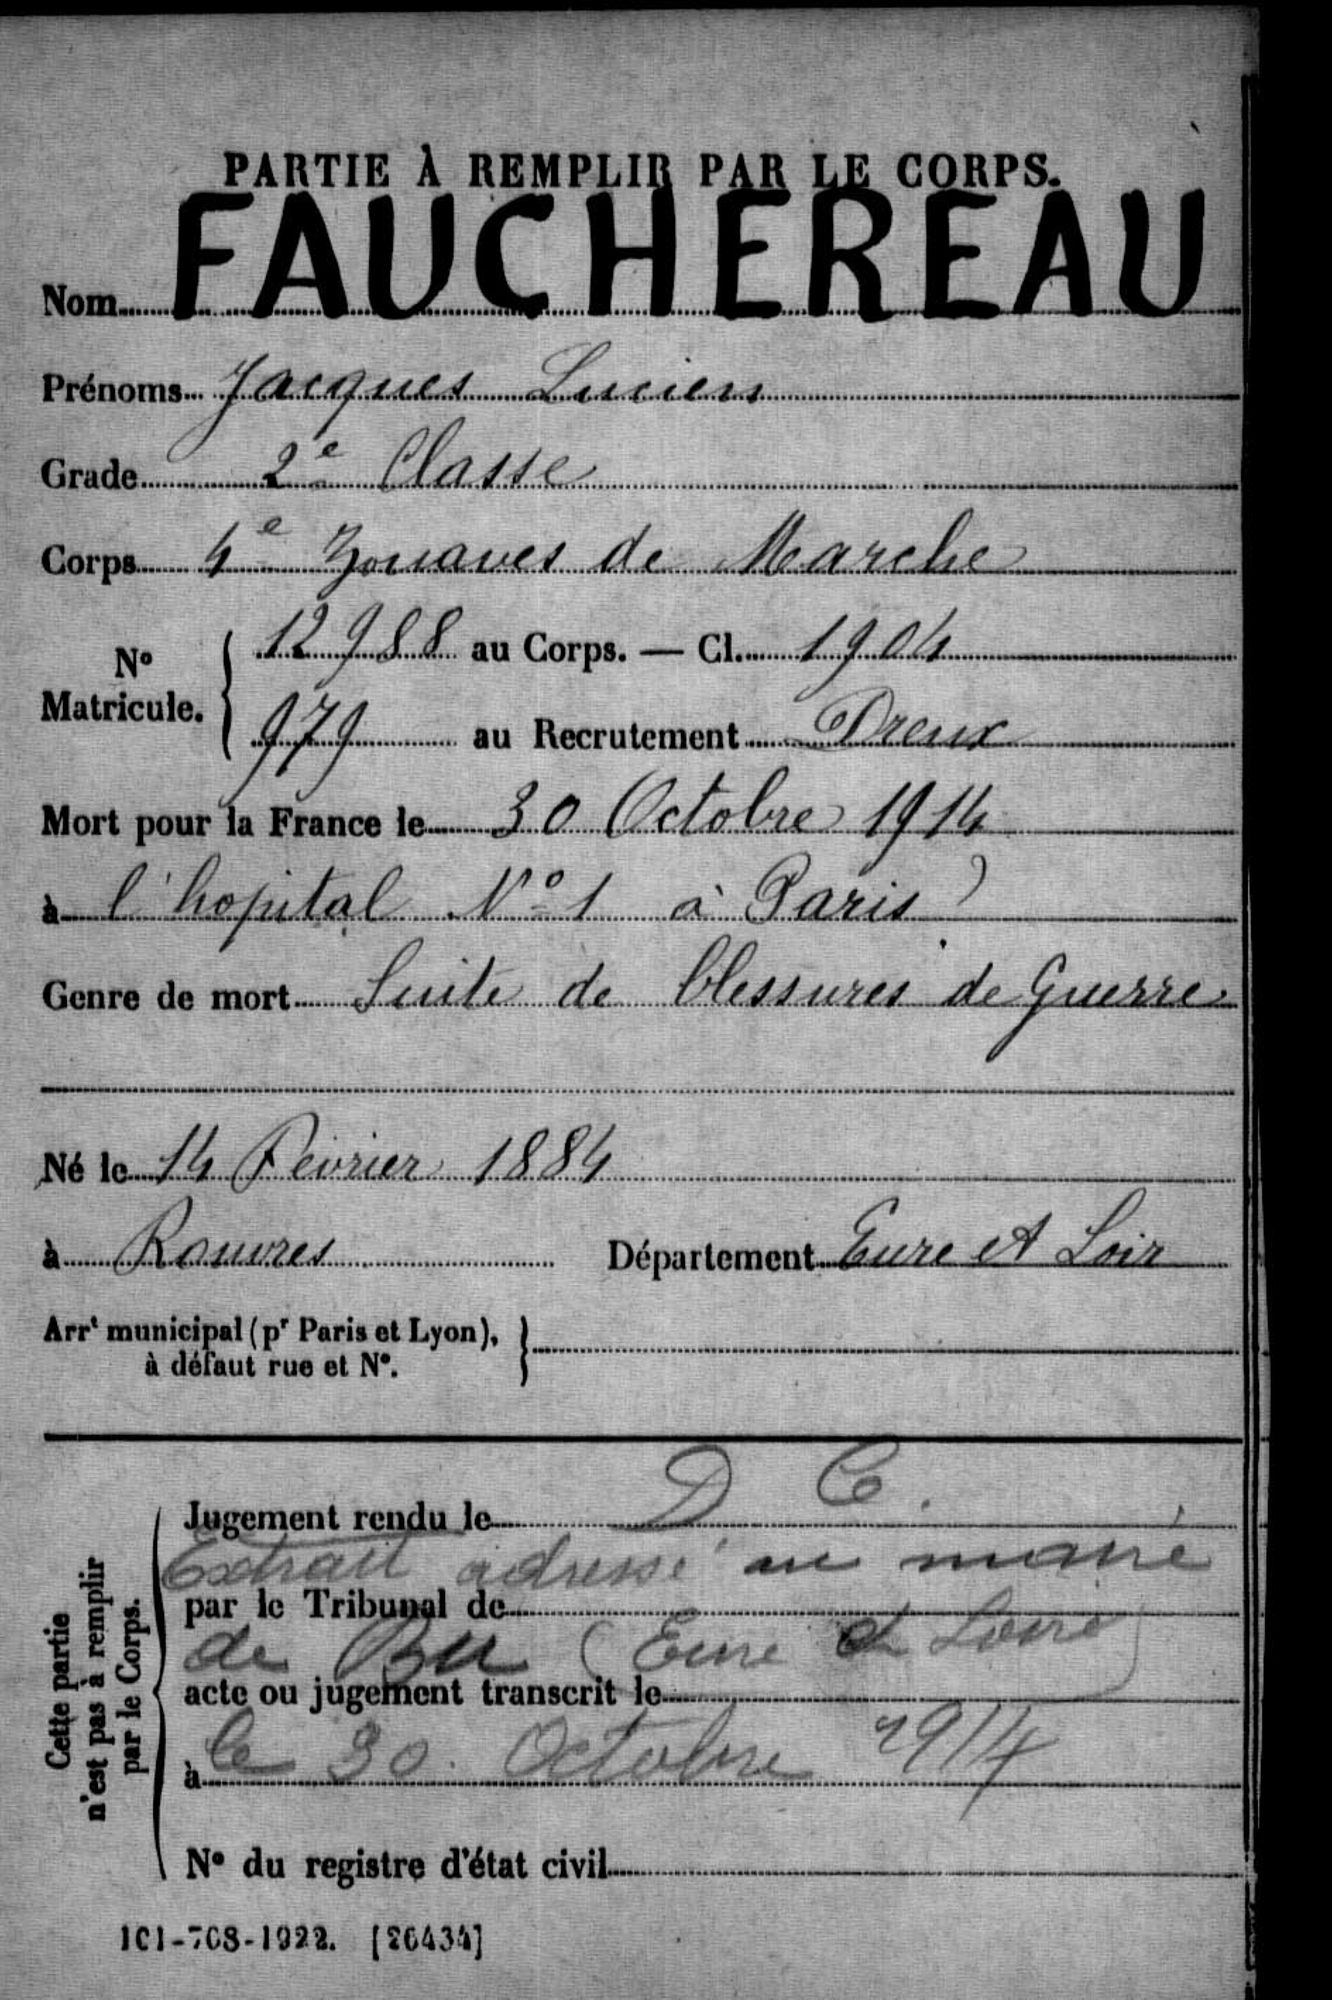 PARTIE À REMPLIR PAR LE CORPS.
Nom FAUCHEREAU
Prénoms Jacques Lucien
Grade 2e Classe
Corps 4e Zouaves de Marche
No Matricule. { 12988 au Corps. — Cl. 1904
979 au Recrutement Dreux
Mort pour la France le 30 Octobre 1914
à l'hopital No 1 à Paris
Genre de mort Suite de blessures de Guerre
Né le 14 Fevrier 1884
à Rouvres Département Eure et Loir
Arrt municipal (pr Paris et Lyon),
à défaut rue et No.
Cette partie
n'est pas à remplir
par le Corps.
Jugement rendu le D C.
Extrait adressé au maire
par le Tribunal de
de Bu (Eure et Loire)
acte ou jugement transcrit le
à le 30 Octobre 1914
No du registre d'état civil
101-708-1922. [26434]